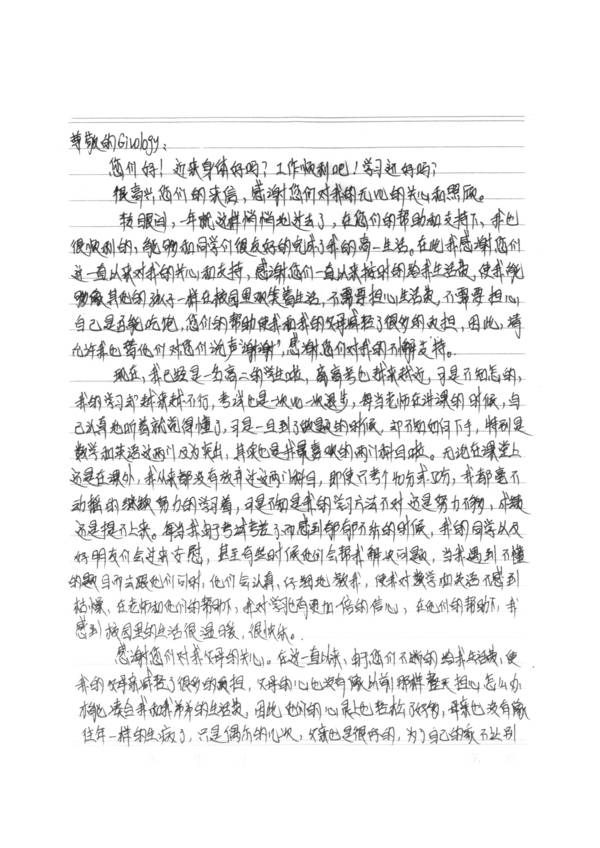 尊敬的Givology：
您们好！近来身体好吗？工作顺利吧！学习还好吗？
很高兴您们的来信，感谢您们对我的无比的关心和照顾。
转眼间，一年就这样悄悄地过去了，在您们的帮助和支持下，我也
很顺利的，能够和同学们很友好的完成了我的高一生活。在此我感谢您们
这一直以来对我的关心和支持，感谢您们一直以来按时的给我生活费，使我能
够像其他的孩子一样在校园里欢笑着生活，不需要担心生活费，不需要担心
自己是否能吃饱，您们的帮助使我和我的父母减轻了很多的负担，因此，请
允许我也替他们对您们说声“谢谢”，感谢您们对我的不懈支持。
现在，我已经是一名高二的学生啦，离高考也越来越近，可是不知怎的，
我的学习却越来越不行，考试也是一次比一次退步，每当老师在讲课的时候，自
己认真地听着就觉得懂了，可是一旦到了做题的时候，却不知如何下手，特别是
数学和英语这两门较为突出，其实也是我最喜欢的两门科目啦。无论在课堂上
还是在课外，我从来都没有放弃过这两门科目，即使只考个 ，我都毫不
动摇的继续努力的学习着，可是不知是我的学习方法不对还是努力不够，成绩
还是提不上来。每当我由于考试考差了而感到郁郁不乐的时候，我的同学以及
好朋友们会过来安慰，甚至有些时候他们会帮我解决问题，当我遇到不懂
的题目而去跟他们问时，他们会认真、仔细地教我，使我对数学和英语不感到
枯燥，在老师和他们的帮助下，我对学习也有更加一倍的信心，在他们的帮助下，我
感到校园里的生活很温暖，很快乐。
感谢您们对我父母的关心。在这一直以来，由于您们不断的给我生活费，使
我的父母亲减轻了很多的负担，父母的心也没有像以前那样整天担心怎么办
才能凑合我和我弟弟的生活费，因此他们的心灵上也轻松了很多，母亲也没有像
往年一样的生病了，只是偶尔的几次，父亲也是很好的，为了自己的孩子达到